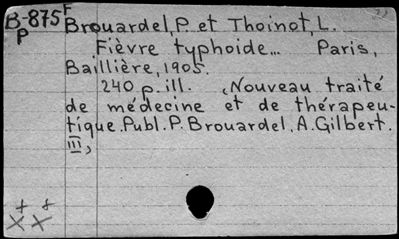 B-875F Brouardel, P. et Thoinot, L.
P
Fièvre typhoide... Paris,
Baillière, 1905.
240 p. ill. (Nouveau traité
de médecine et de thérapeu-
tique. Publ. P. Brouardel, A. Gilbert.
III)